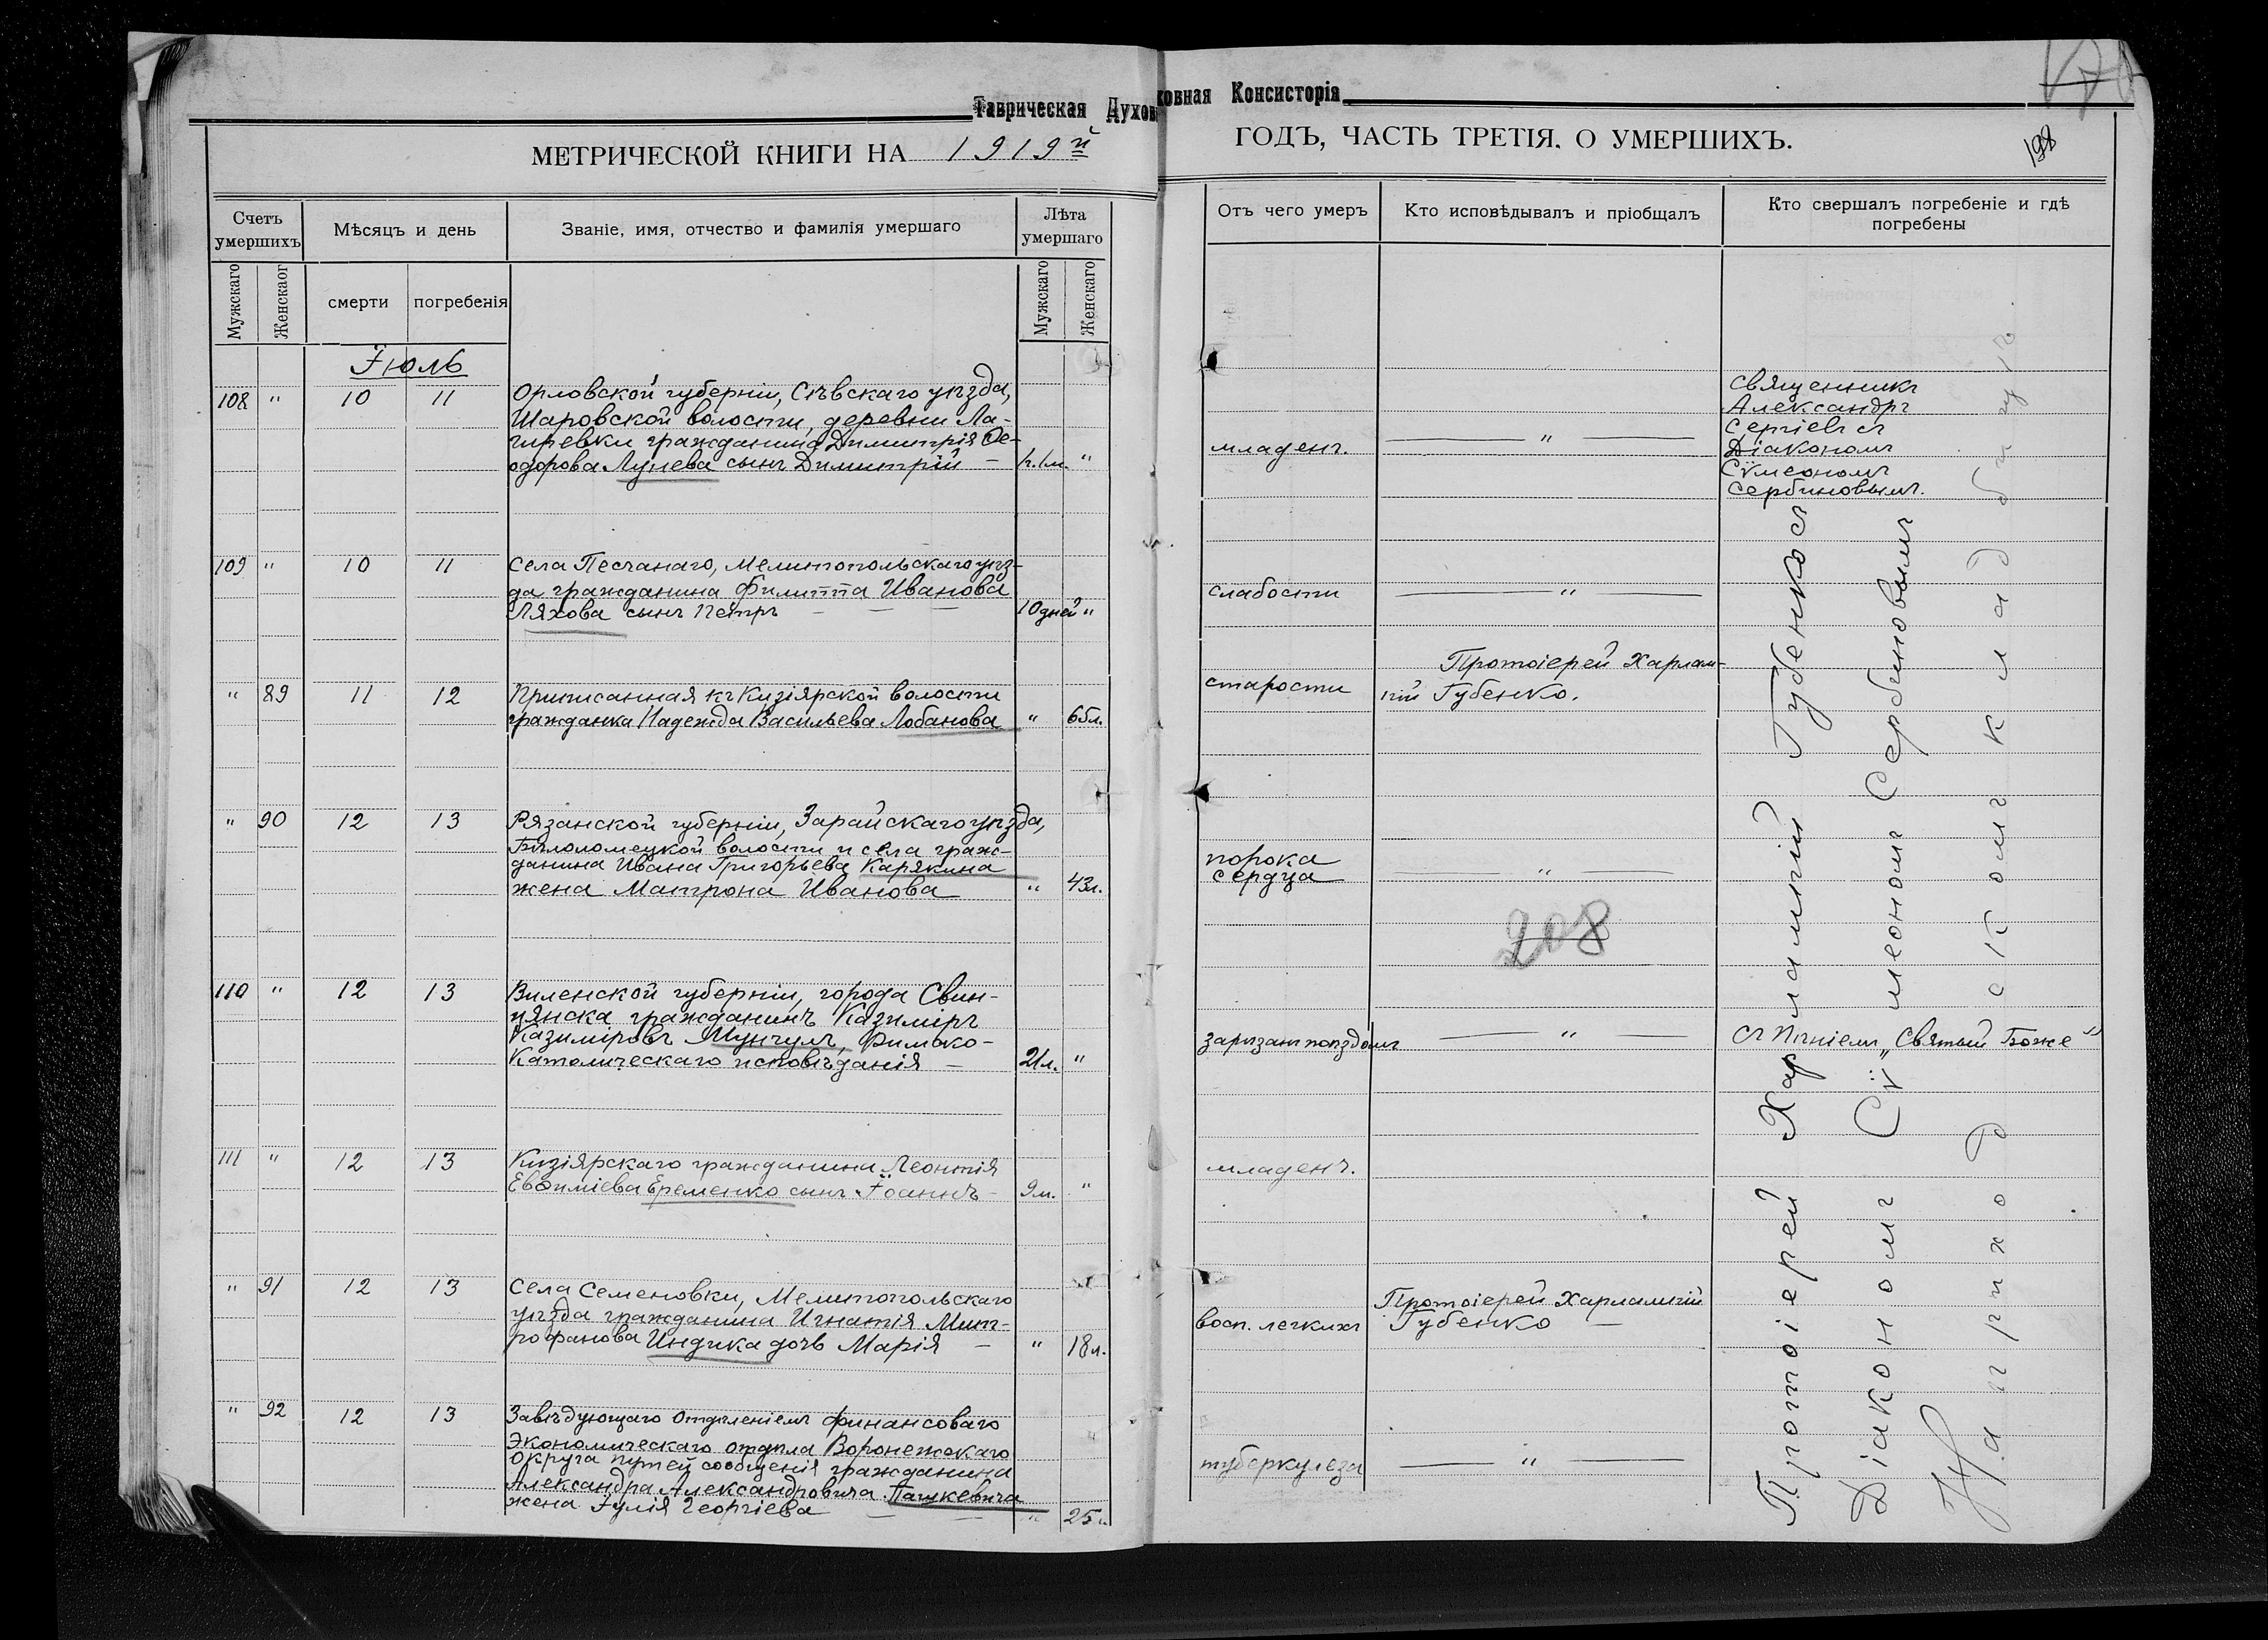 Таврическая Духовная Консисторія
МЕТРИЧЕСКОЙ КНИГИ НА 1919й ГОДЪ, ЧАСТЬ ТРЕТІЯ. О УМЕРШИХЪ.
198
Счетъ умершихъ
Мужскаго
Женскаог
Мѣсяцъ и день
смерти
погребенія
Званіе, имя, отчество и фамилія умершаго
Лѣта умершаго
Мужскаго
Женскаго
Отъ чего умеръ
Кто исповѣдывалъ и пріобщалъ
Кто свершалъ погребеніе и гдѣ
погребены
Іюль
108 " 10 11
Орловской губерніи, Сѣвскаго уѣзда,
Шаровской волости, деревни Ла-
гиревки гражданина Димитрія Ѳе-
одорова Лунева сынъ Димитрій –
"
младенч.
"
Священникъ
Александръ
Сергіевъ съ
Діакономъ
Сѵмеономъ
Сербиновымъ.
109 " 10 11
Села Песчанаго, Мелитопольскаго уѣз-
да гражданина Филиппа Иванова
Ляхова сынъ Петръ – – –
10 дней "
слабости
"
" 89 11 12
Приписанная къ Кизіярской волости
гражданка Надежда Васильева Лобанова
" 65л.
старости
Протоіерей Харлам-
пій Губенко.
" 90 12 13
Рязанской губерніи, Зарайскаго уѣзда,
Бѣлоломецкой волости и села граж-
данина Ивана Григорьева Карякина
жена Матрона Иванова
" 43л.
порока
сердца
"
208
110 " 12 13
Виленской губерніи, города Свин-
цянска гражданинъ Казиміръ
Казиміровъ Мунчулъ, Римско-
Католическаго исповѣданія –
21л. "
зарѣзанъ поѣздомъ
"
съ пѣніемъ „Святый Боже"
111 " 12 13
Кизіярскаго гражданина Леонтія
Евѳиміева Еременко сынъ Іоаннъ –
9м. "
младенч.
" 91 12 13
Села Семеновки, Мелитопольскаго
уѣзда гражданина Игнатія Мит-
рофанова Индика дочь Марія –
" 18л.
восп. легкихъ
Протоіерей Харлампій
Губенко –
" 92 12 13
Завѣдующаго отдѣленіемъ финансоваго
Экономическаго отдѣла Воронежскаго
Округа путей сообщенія гражданина
Александра Александровича Пашкевича
жена Іулія Георгіева – –
" 25л.
туберкулеза
"
Протоіерей Харлампій Губенко съ
Діакономъ Сѵмеономъ Сербиновымъ
На приходскомъ кладбищѣ